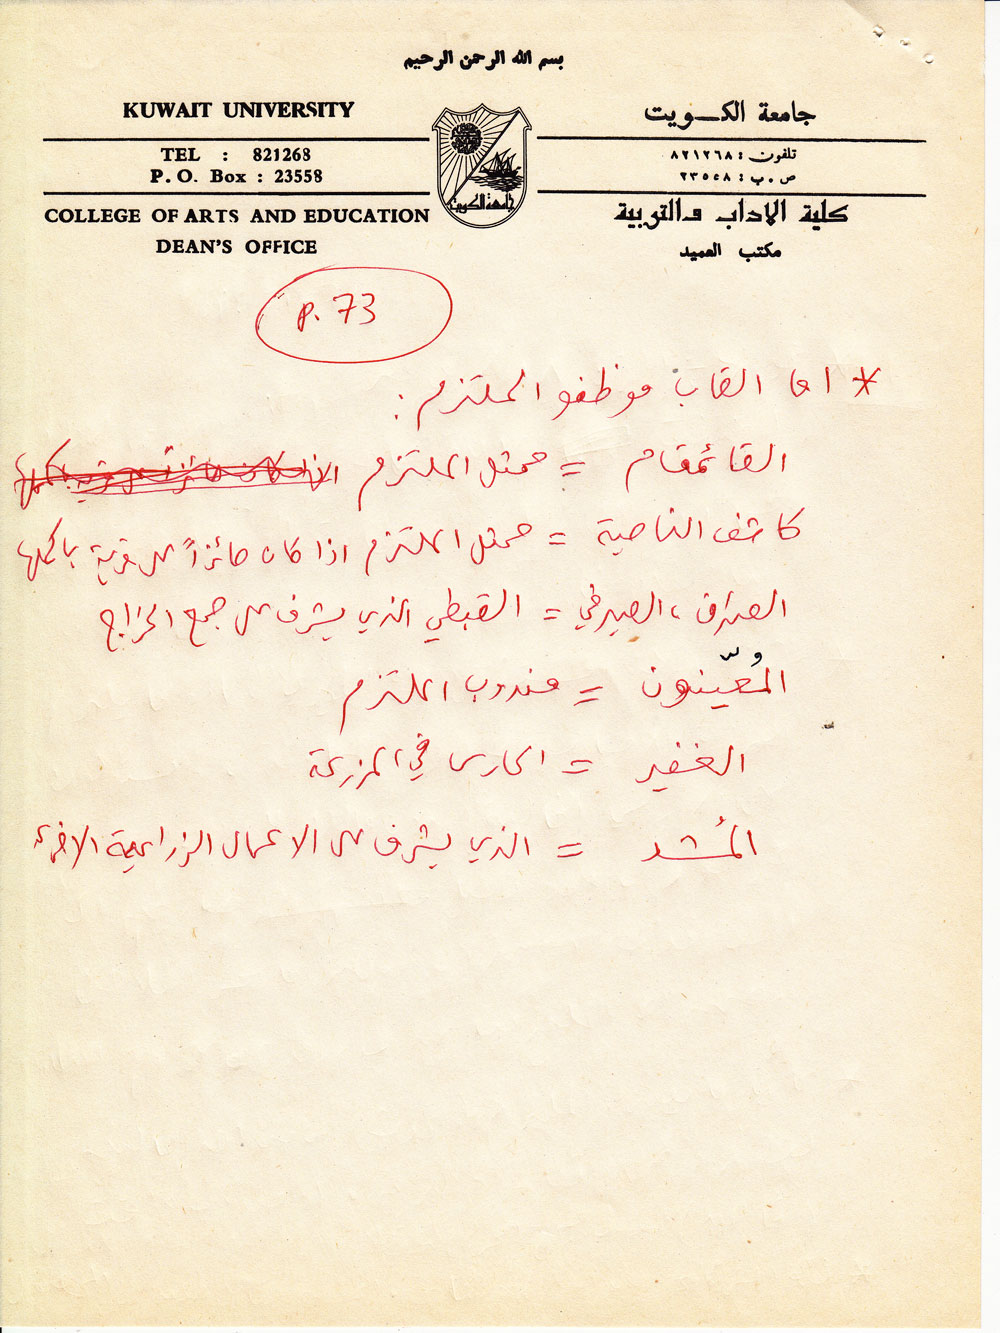 بسم الله الرحمن الرحيم
KUWAIT UNIVERSITY
جامعة الكويت
TEL : 821268
P. O. Box : 23558
تلفون : ٨٢١٢٦٨
ص . ب : ٢٣٥٥٨
جامعة الكويت
COLLEGE OF ARTS AND EDUCATION
DEAN'S OFFICE
كلية الاداب والتربية
مكتب العميد
p. 73
* اما القاب موظفو الملتزم :
القائمقام = ممثل الملتزم
كاشف الناحية = ممثل الملتزم اذا كان حائزاً على قرية باكملها
الصراف ، الصيرفي = القبطي الذي يشرف على جمع الخراج
المُعيّنون = مندوب الملتزم
الغفير = الحارس في المزرعة
المُشد = الذي يشرف على الاعمال الزراعية الاخرى